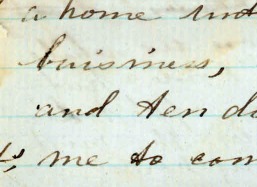 a home
buisiness,
and ten
me to com